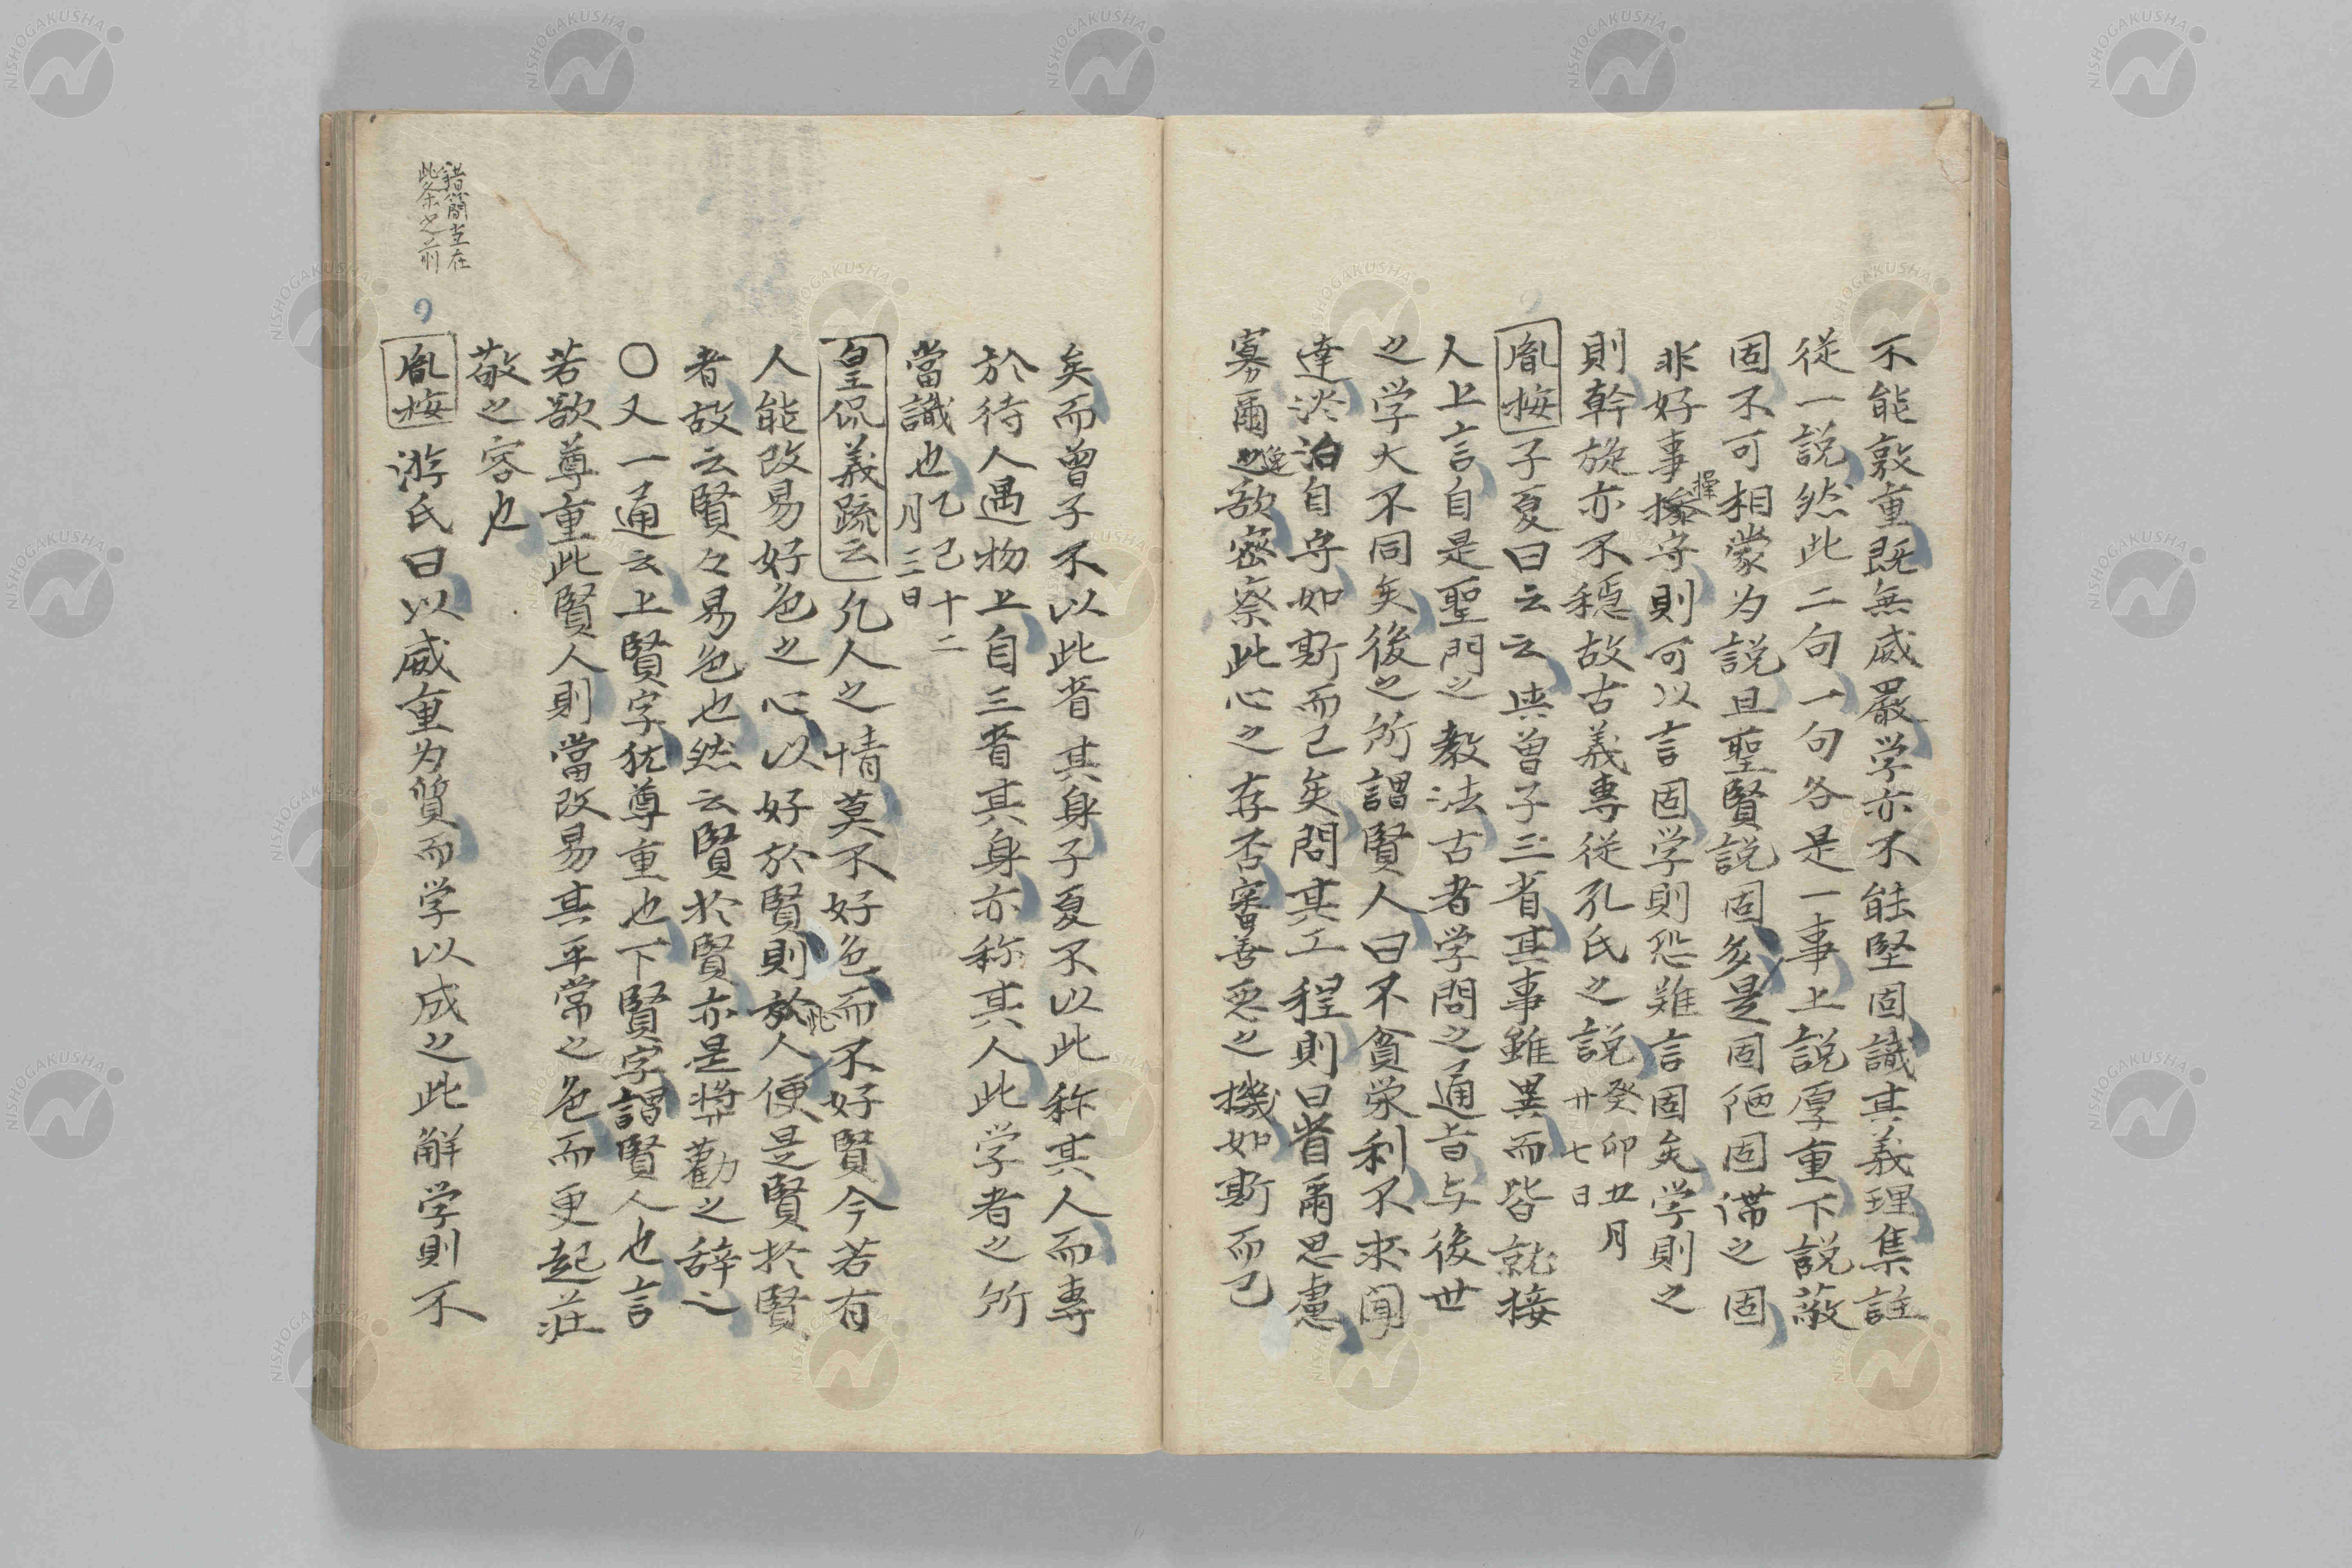 不能敦重既無威嚴学亦不能堅固識其義理集註
従一説然此二句一句各是一事上説厚重下説蔽
固不可相蒙为説且聖賢説固多是固陋固滞之固
非好事操守則可以言固学則恐難言固矣学則之
則幹旋亦不穏故古義專従孔氏之説癸卯五月
廿七日
胤按子夏曰云云与曾子三省其事雖異而皆就接
人上言自是聖門之教法古者学問之通旨与後世
之学大不同矣後之所謂賢人曰不貪栄利不求聞
達淡泊自守如斯而已矣問其工程則曰省爾思慮
寡爾嗜欲密察此心之存否審善悪之機如斯而已
矣而曾子不以此省其身子夏不以此称其人而專
於待人遇物上自三省其身亦称其人此学者之所
當識也乙己十二
月三日
皇侃義疏云凡人之情莫不好色而不好賢今若有
人能改易好色之心以好於賢則於此人便是賢於賢
者故云賢々易色也然云賢於賢亦是奨勸之辞之
〇又一通云上賢字猶尊重也下賢字謂賢人也言
若欲尊重此賢人則當改易其平常之色而更起莊
敬之容也
錯簡当在
此条之前
胤按游氏曰以威重为質而学以成之此解学則不
NISHOGAKUSHA